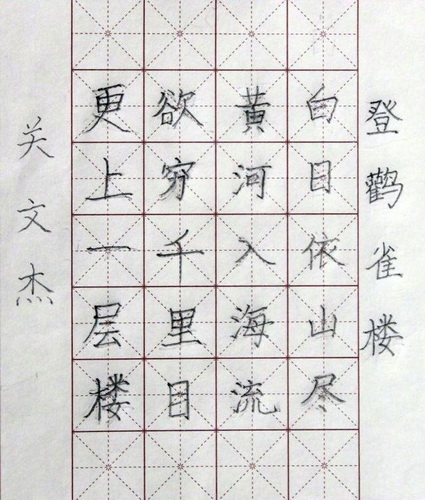 登鹳雀楼
白日依山尽
黄河入海流
欲穷千里目
更上一层楼
关文杰